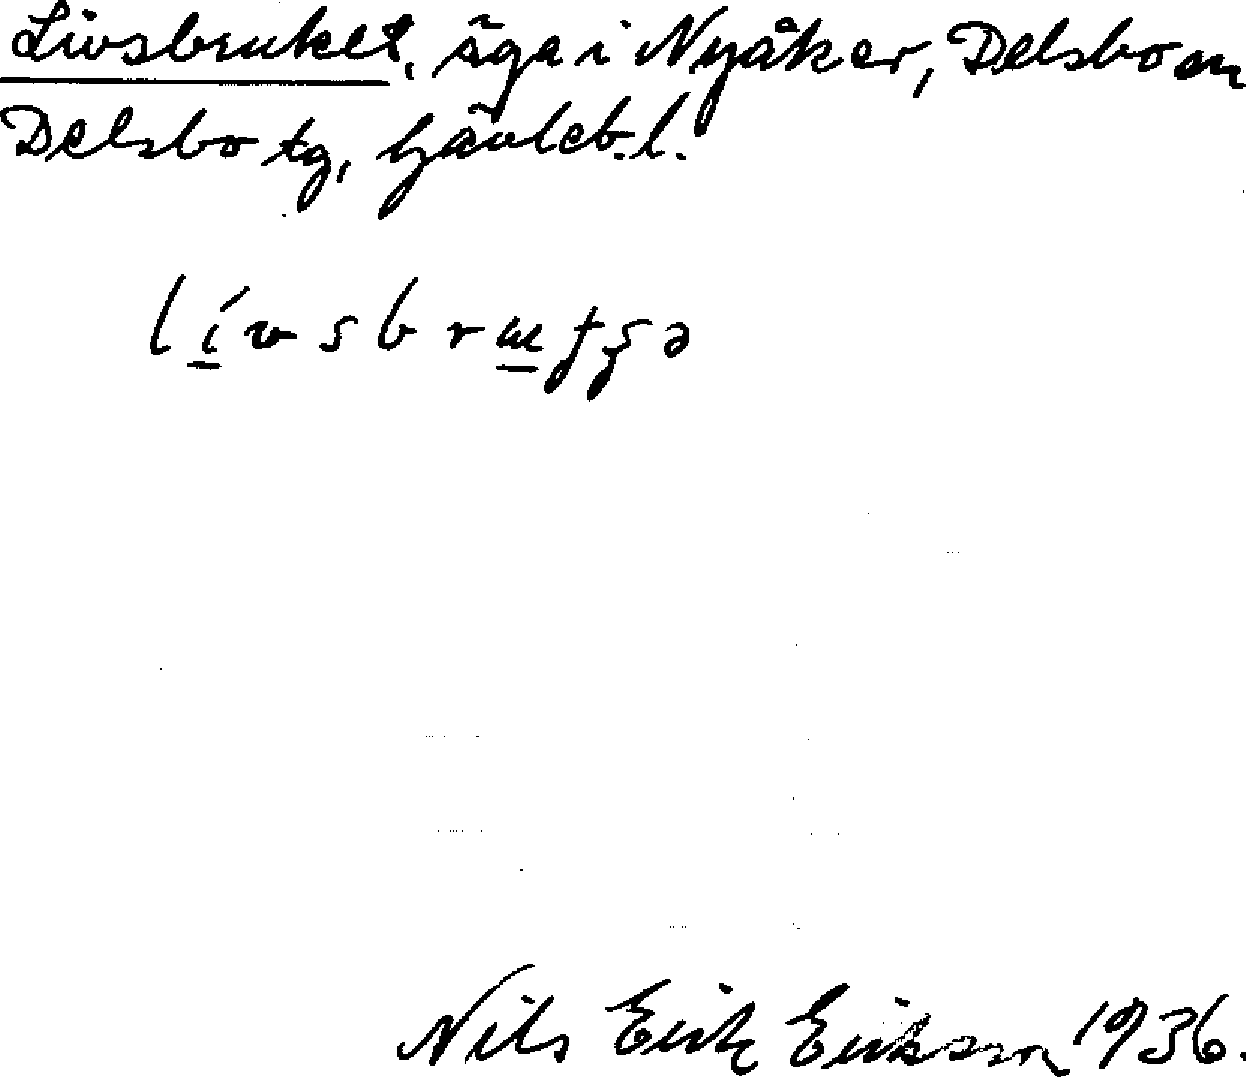 Livsbruket, äga i Nyåker, Delsbo sn
Delsbo tg, Gävleb. l.
Nils Erik Erikson 1936.